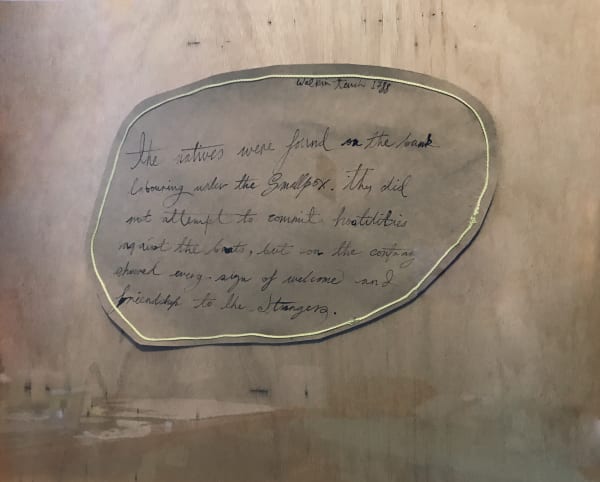 Watkin Tench 1788
The natives were found on the bank
labouring under the Smallpox. They did
not attempt to commit hostilities
against the boats, but on the contrary
showed every sign of welcome and
friendship to the strangers.